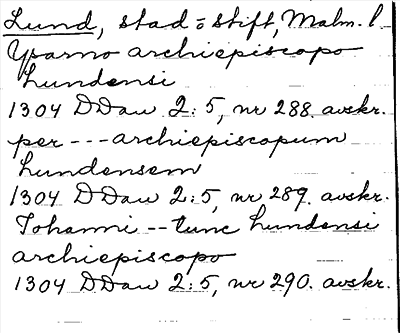 Lund, stad o stift, Malm. l
Yparno archiepiscopo
Lundensi
1304 DDan 2:5, nr 288. avskr.
per --- archiepiscopum
Lundensem
1304 DDan 2:5, nr 289. avskr.
Johanni -- tunc Lundensi
archiepiscopo
1304 DDan 2:5, nr 290. avskr.